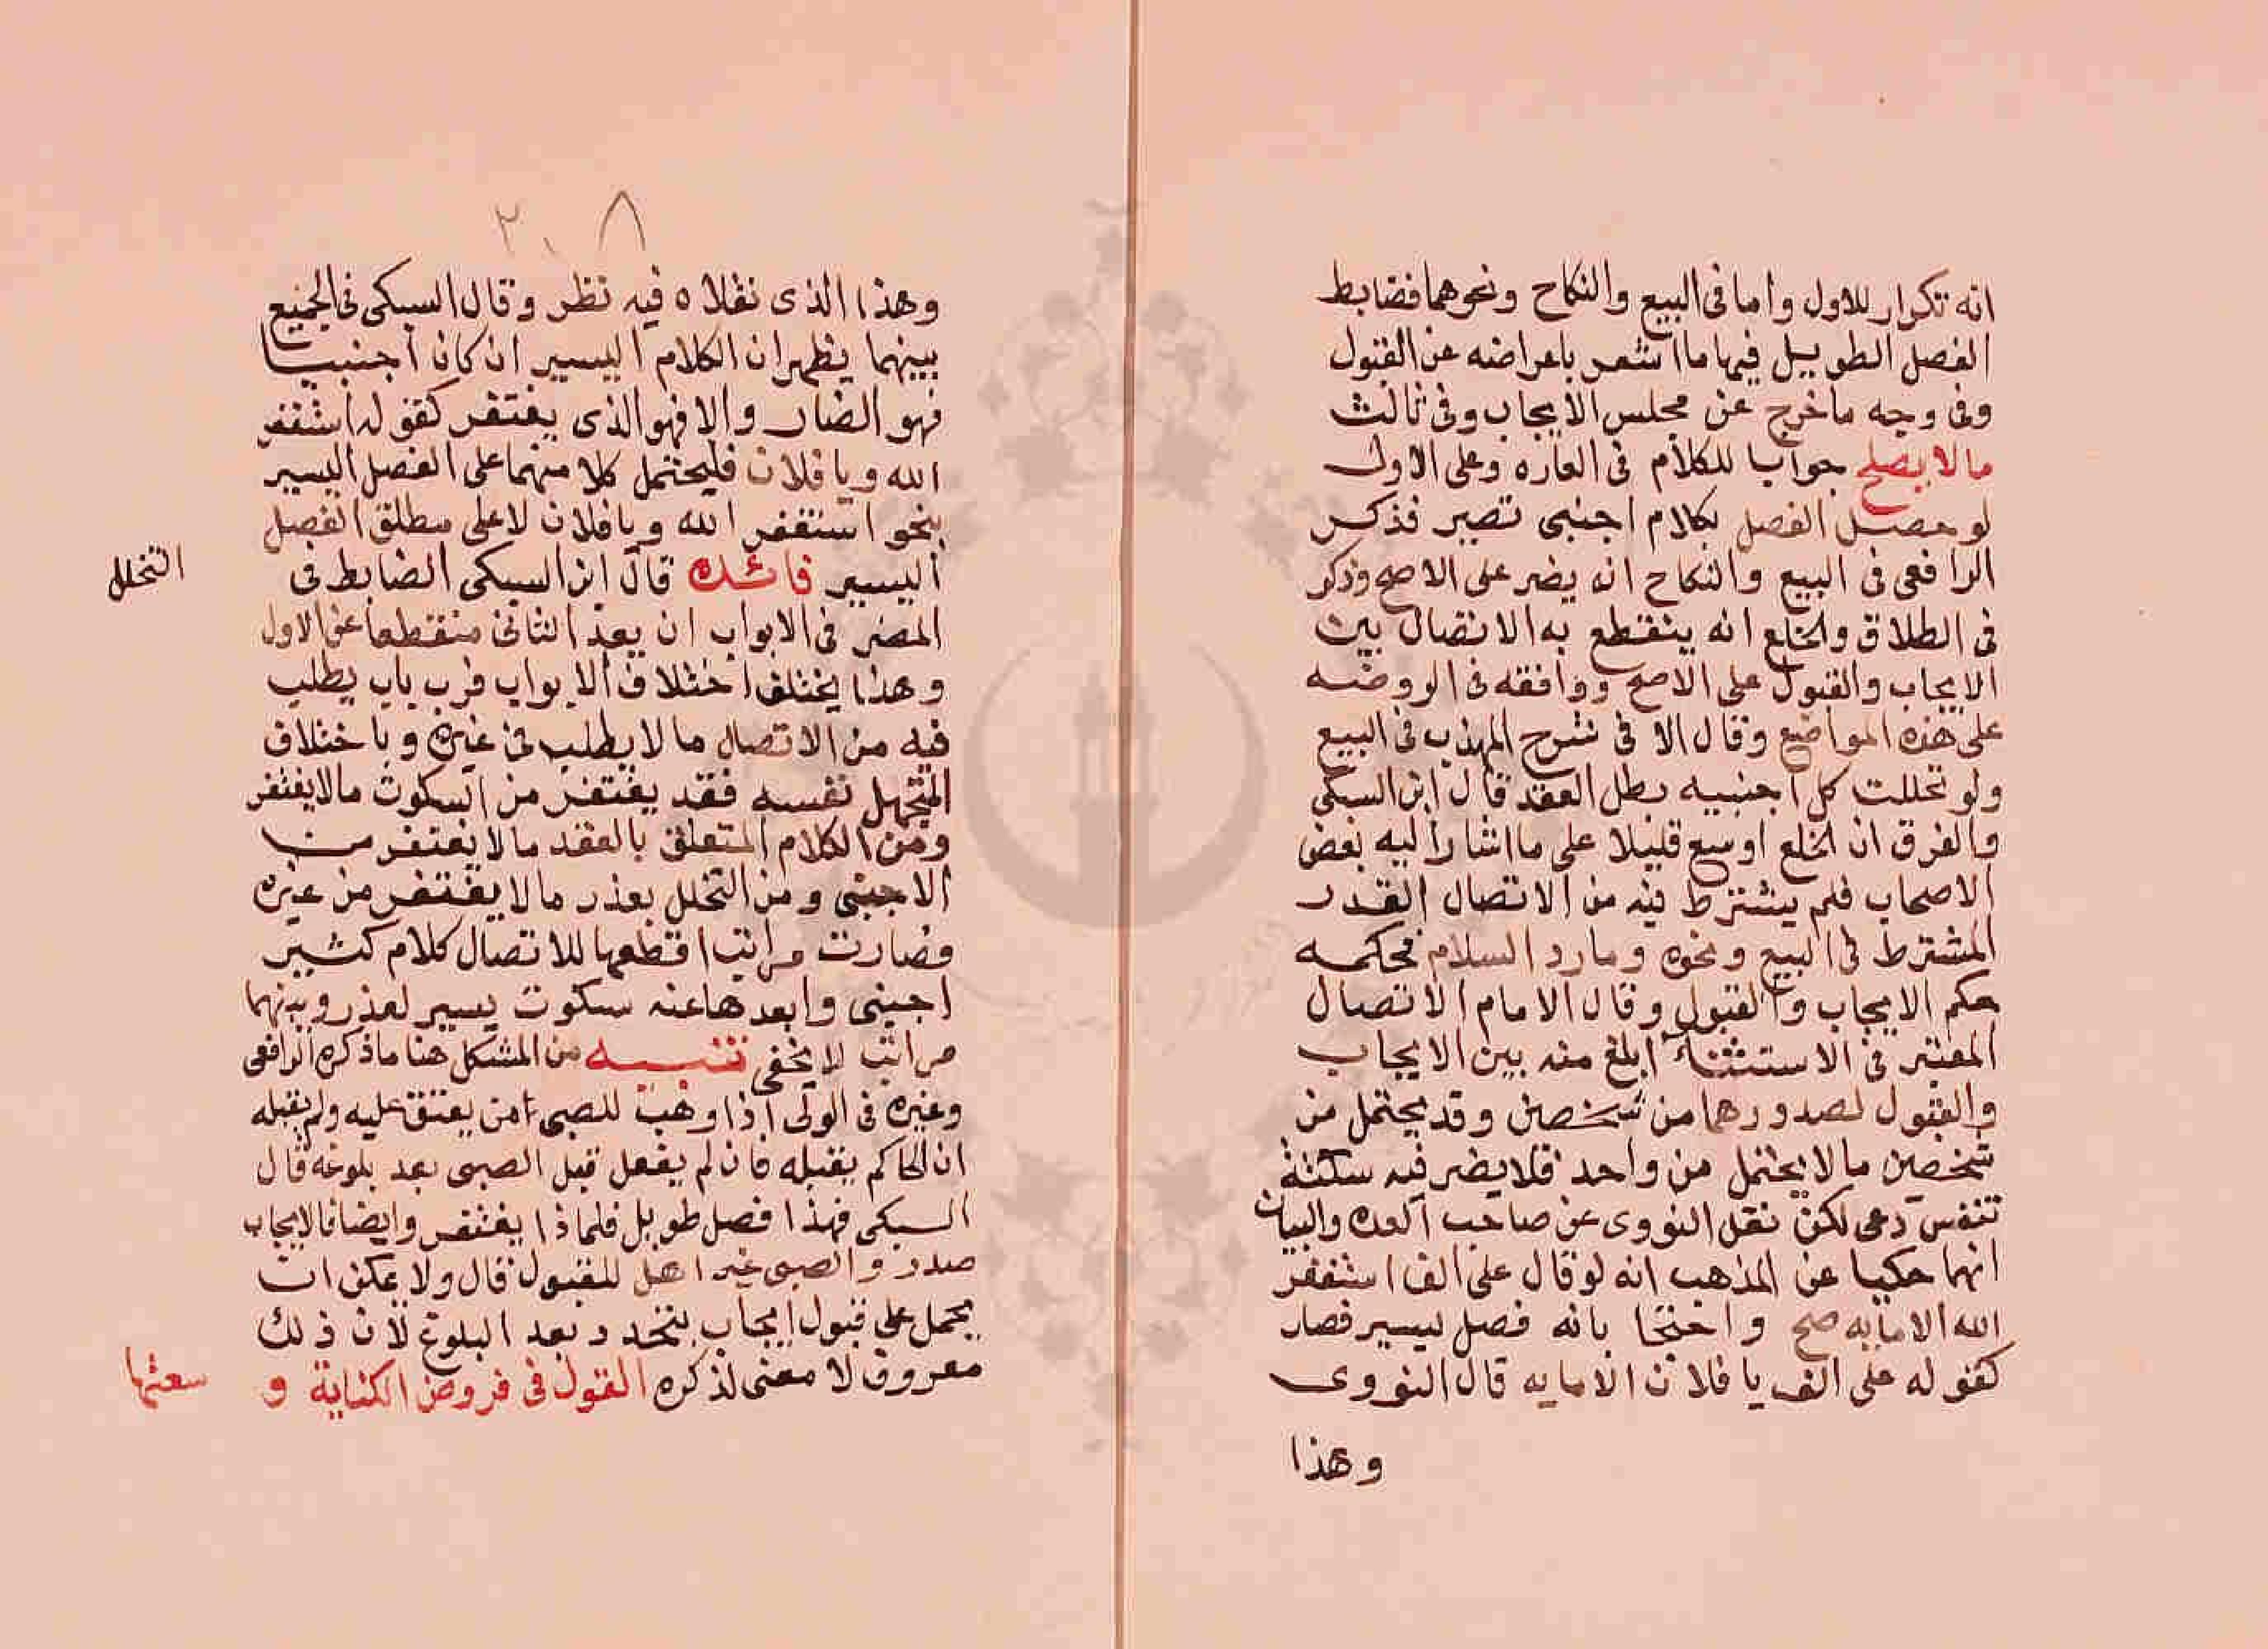 انه تكرار للاول واما فى البيع والنكاح ونحوهما فضابط
الفصل الطويل فيها ما اشعر باعراضه عن القبول
وفى وجه ما خرج عن مجلس الايجاب وفى ثالث
ما لا يصلح جوابا للكلام فى العاده وعلى الاول
لو حصل الفصل بكلام اجنبى قصير فذكر
الرافعى فى البيع والنكاح انه يضر على الاصح وذكر
فى الطلاق والخلع انه ينقطع به الاتصال بين
الايجاب والقبول على الاصح ووافقه فى الروضه
على هذه المواضع وقال الا فى شرح المهذب فى البيع
ولو تخللت كل اجنبيه بطل العقد قال ابن السبكى
والفرق ان الخلع اوسع قليلا على ما اشار اليه بعض
الاصحاب فلم يشترط فيه من الاتصال القدر
المشترط فى البيع ونحوه وما رد السلام فحكمه
حكم الايجاب والقبول وقال الامام الاتصال
المعتبر فى الاستثناء ابلغ منه بين الايجاب
والقبول لصدورهما من شخصين وقد يحتمل من
شخصين ما لا يحتمل من واحد فلا يضر فيه سكتة
تنفس وعى لكن نقل النووى عن صاحب العده والبيان
انهما حكيا عن المذهب انه لو قال على الف استغفر
الله الا مايه صح واحتجا بانه فصل يسير فصار
كقوله على الف يا فلان الا مايه قال النووى
وهذا
٢٠٨
وهذا الذى نقلاه فيه نظر وقال السبكى فى الجميع
بينهما يظهر ان الكلام اليسير ان كان اجنبيا
فهو الضار والا فهو الذى يغتفر كقوله استغفر
الله ويا فلان فليحتمل كلا منهما على الفصل اليسير
بنحو استغفر الله ويا فلان لا على مطلق الفصل
اليسير فائده قال ابن السبكى الضابط فى
التخلل
المضر فى الابواب ان يعد الثانى منقطعا عن الاول
وهذا يختلف اختلاف الابواب فرب باب يطلب
فيه من الاتصال ما لا يطلب فى غيره وباختلاف
المتحمل نفسه فقد يغتفر من السكوت ما لا يغتفر
ومن الكلام المتعلق بالعقد ما لا يغتفر من
الاجنبى ومن التخلل بعذر ما لا يغتفر من غيره
فصارت مراتب اقطعها للاتصال كلام كثير
اجنبى وابعدها عنه سكوت يسير لعذر وبينهما
مراتب لا يخفى تنبيه من المشكل هنا ما ذكره الرافعى
وغيره فى الولى اذا وهب للصبى من يعتق عليه ولم يقبله
ان الحاكم يقبله فان لم يفعل قبل الصبى بعد بلوغه قال
السبكى فهذا فصل طويل فلماذا يغتفر وايضا فالايجاب
صدر والصبى غير اهل للقبول قال ولا يمكن ان
يحمل على قبول ايجاب يتجدد بعد البلوغ لان ذلك
معروف لا معنى لذكره القول فى فروض الكفاية و
سعتها